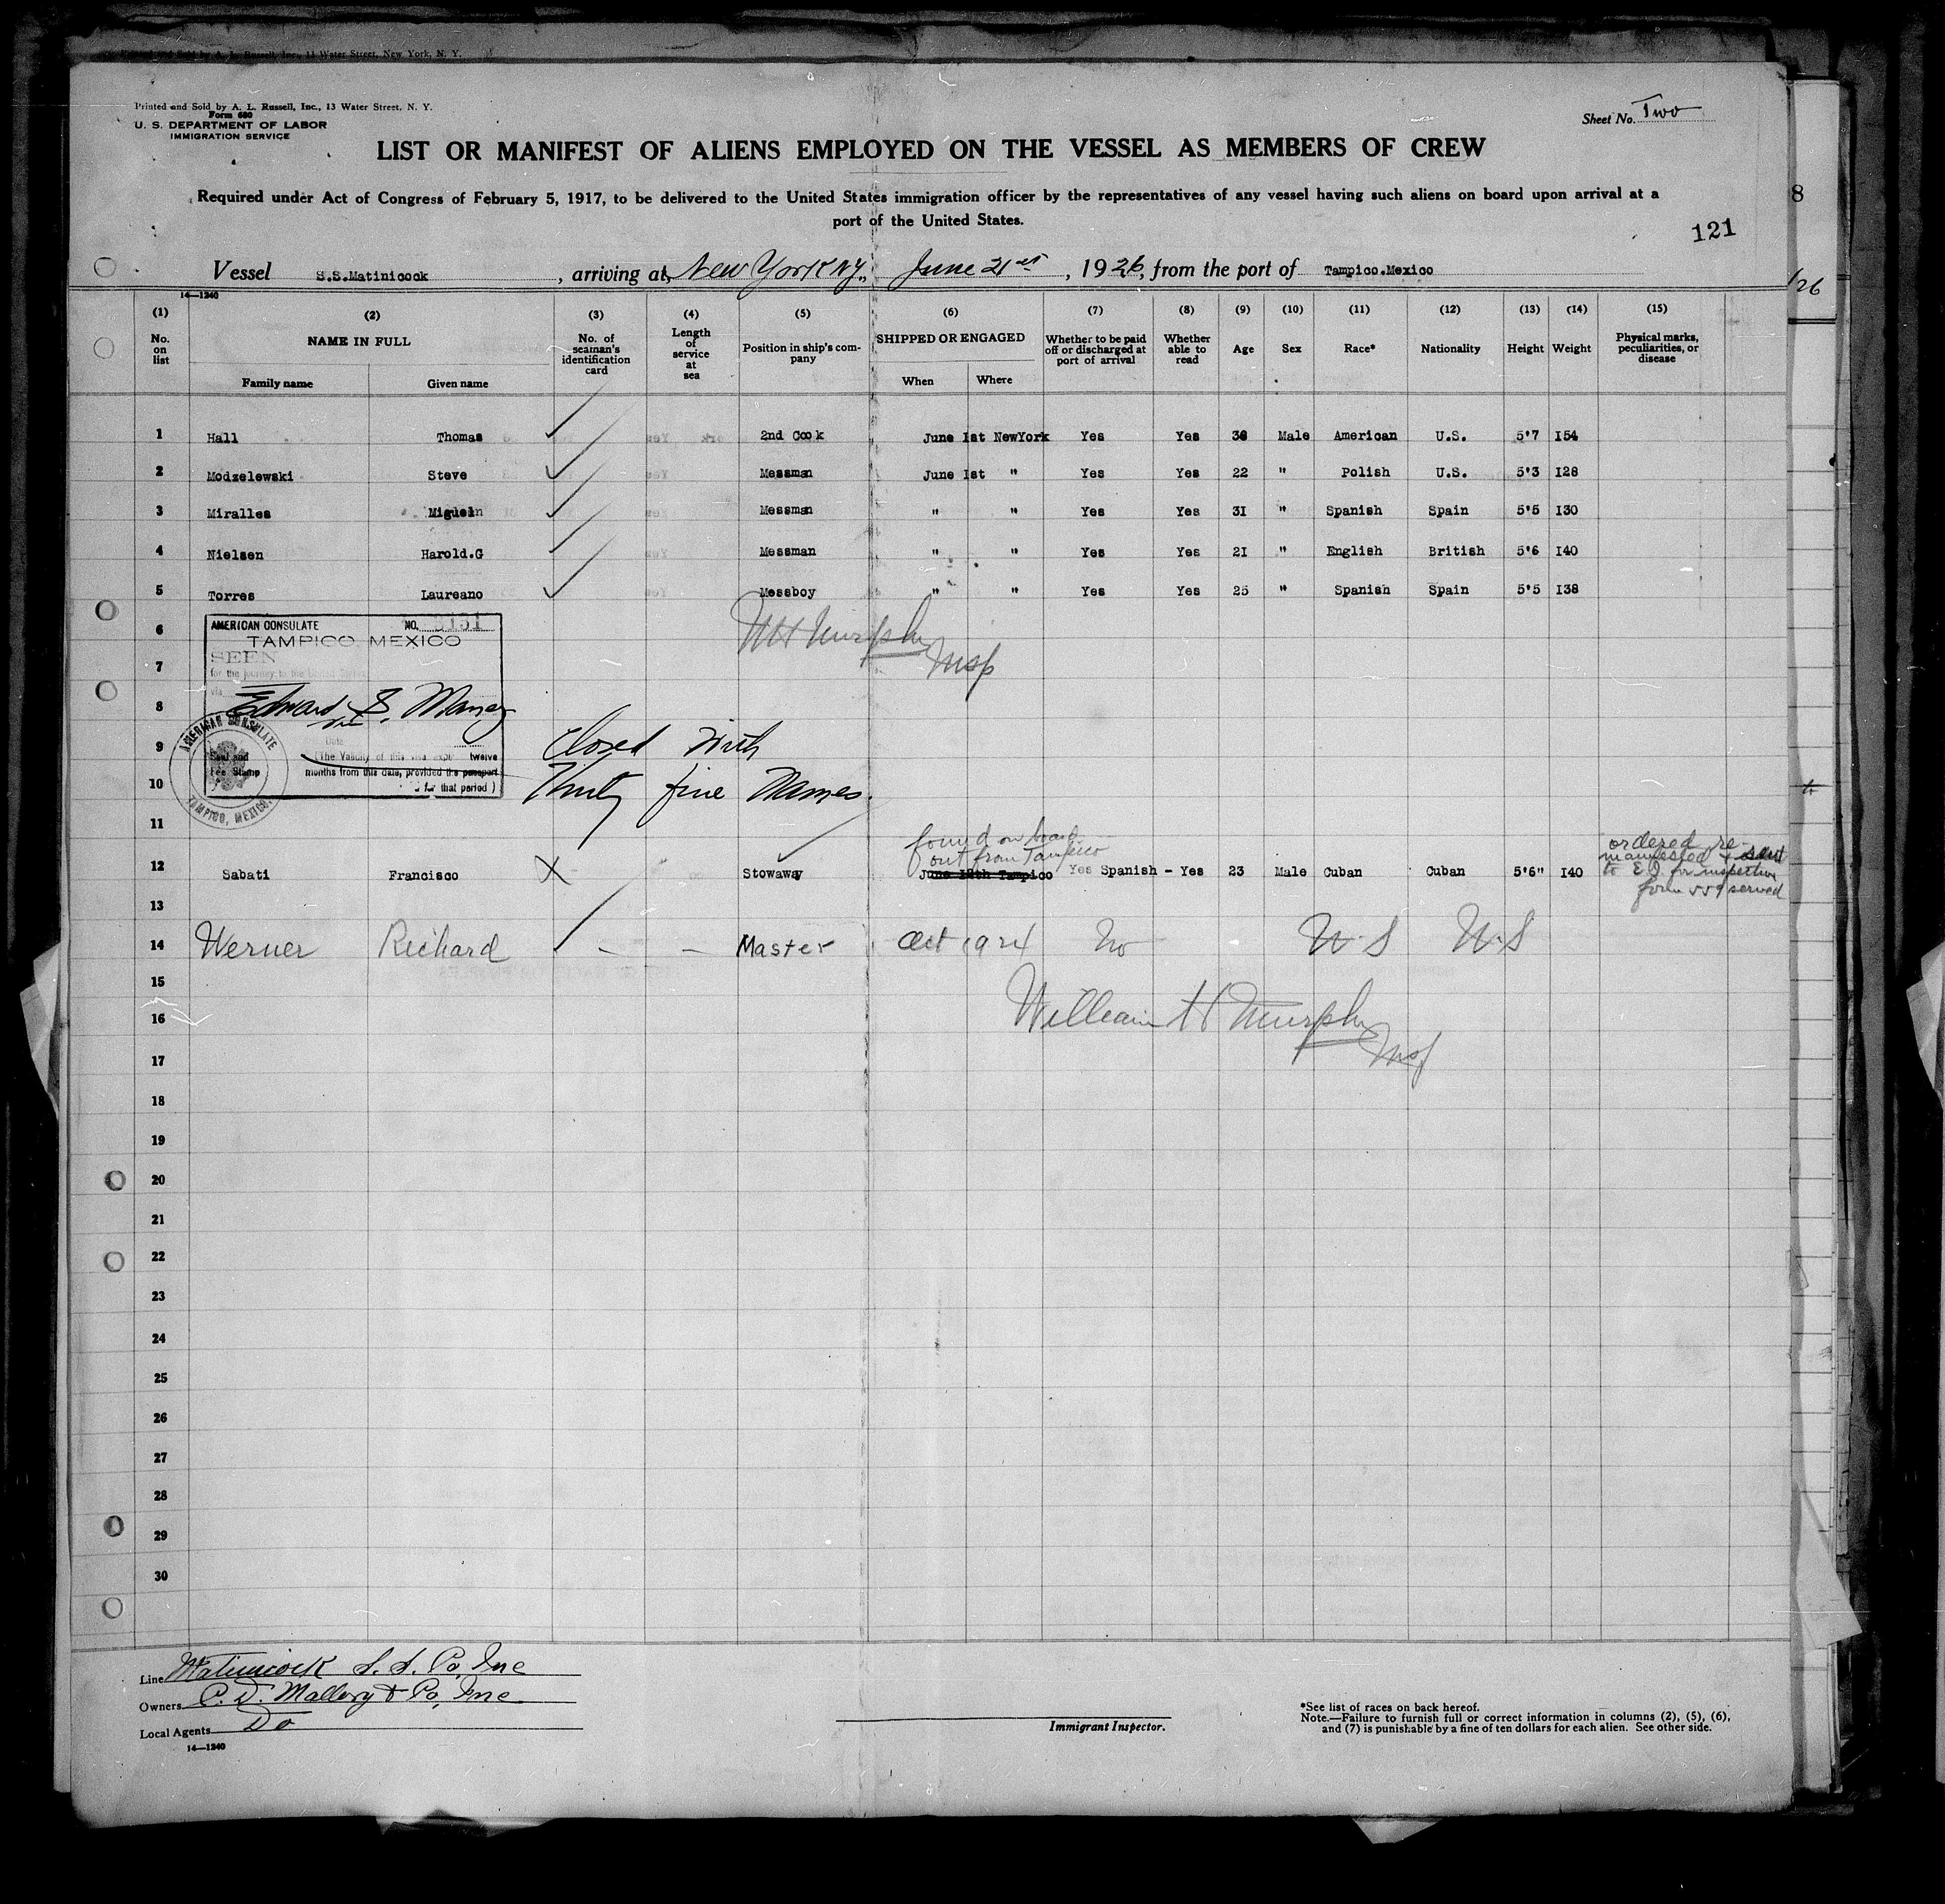 Printed and Sold by A. L. Russell, Inc., 13 Water Street, New York, N. Y.
Printed and Sold by A. L. Russell, Inc., 13 Water Street, N. Y.
Form 680
U. S. DEPARTMENT OF LABOR
IMMIGRATION SERVICE
Sheet No. Two
LIST OR MANIFEST OF ALIENS EMPLOYED ON THE VESSEL AS MEMBERS OF CREW
Required under Act of Congress of February 5, 1917, to be delivered to the United States immigration officer by the representatives of any vessel having such aliens on board upon arrival at a
port of the United States.
8
121
Vessel S.S.Matinicock , arriving at New York NY., June 21st , 1926, from the port of Tampico.Mexico
/26
14—1240
(1) (2) (3) (4) (5) (6) (7) (8) (9) (10) (11) (12) (13) (14) (15)
No. on list NAME IN FULL No. of seaman's identification card Length of service at sea Position in ship's company SHIPPED OR ENGAGED Whether to be paid off or discharged at port of arrival Whether able to read Age Sex Race* Nationality Height Weight Physical marks, peculiarities, or disease
Family name Given name When Where
1 Hall Thomas 2nd Cook June 1st NewYork Yes Yes 38 Male American U.S. 5'7 154
2 Modzelewski Steve Messman June 1st " Yes Yes 22 " Polish U.S. 5'3 128
3 Miralles Miguel Messman " " Yes Yes 31 " Spanish Spain 5'5 130
4 Nielsen Harold.G Messman " " Yes Yes 21 " English British 5'6 140
5 Torres Laureano Messboy " " Yes Yes 25 " Spanish Spain 5'5 138
6
AMERICAN CONSULATE NO. 5151
TAMPICO MEXICO
SEEN
for the journey to the United States
via
WH Murphy
Insp
7
8
Edward S. Maney
AMERICAN CONSULATE
TAMPICO, MEXICO.
Seal and
Fee Stamp
Date
(The Validity of this visa expires twelve
months from this date, provided the passport
for that period)
9 Closed with
10 Thirty five Names.
11
found on board
out from Tampico
12 Sabati Francisco X Stowaway June 12th Tampico Yes Spanish - Yes 23 Male Cuban Cuban 5'6" 140
ordered re-
manifested & sent
to E I for inspection
form 559 served
13
14 Werner Richard - - Master Oct 1924 No U.S U.S
15
16 William H Murphy
Insp
17
18
19
20
21
22
23
24
25
26
27
28
29
30
Line Matinicock S. S. Co, Inc
Owners C. D. Mallory & Co, Inc
Local Agents Do
14—1240
Immigrant Inspector.
*See list of races on back hereof.
Note.—Failure to furnish full or correct information in columns (2), (5), (6),
and (7) is punishable by a fine of ten dollars for each alien. See other side.